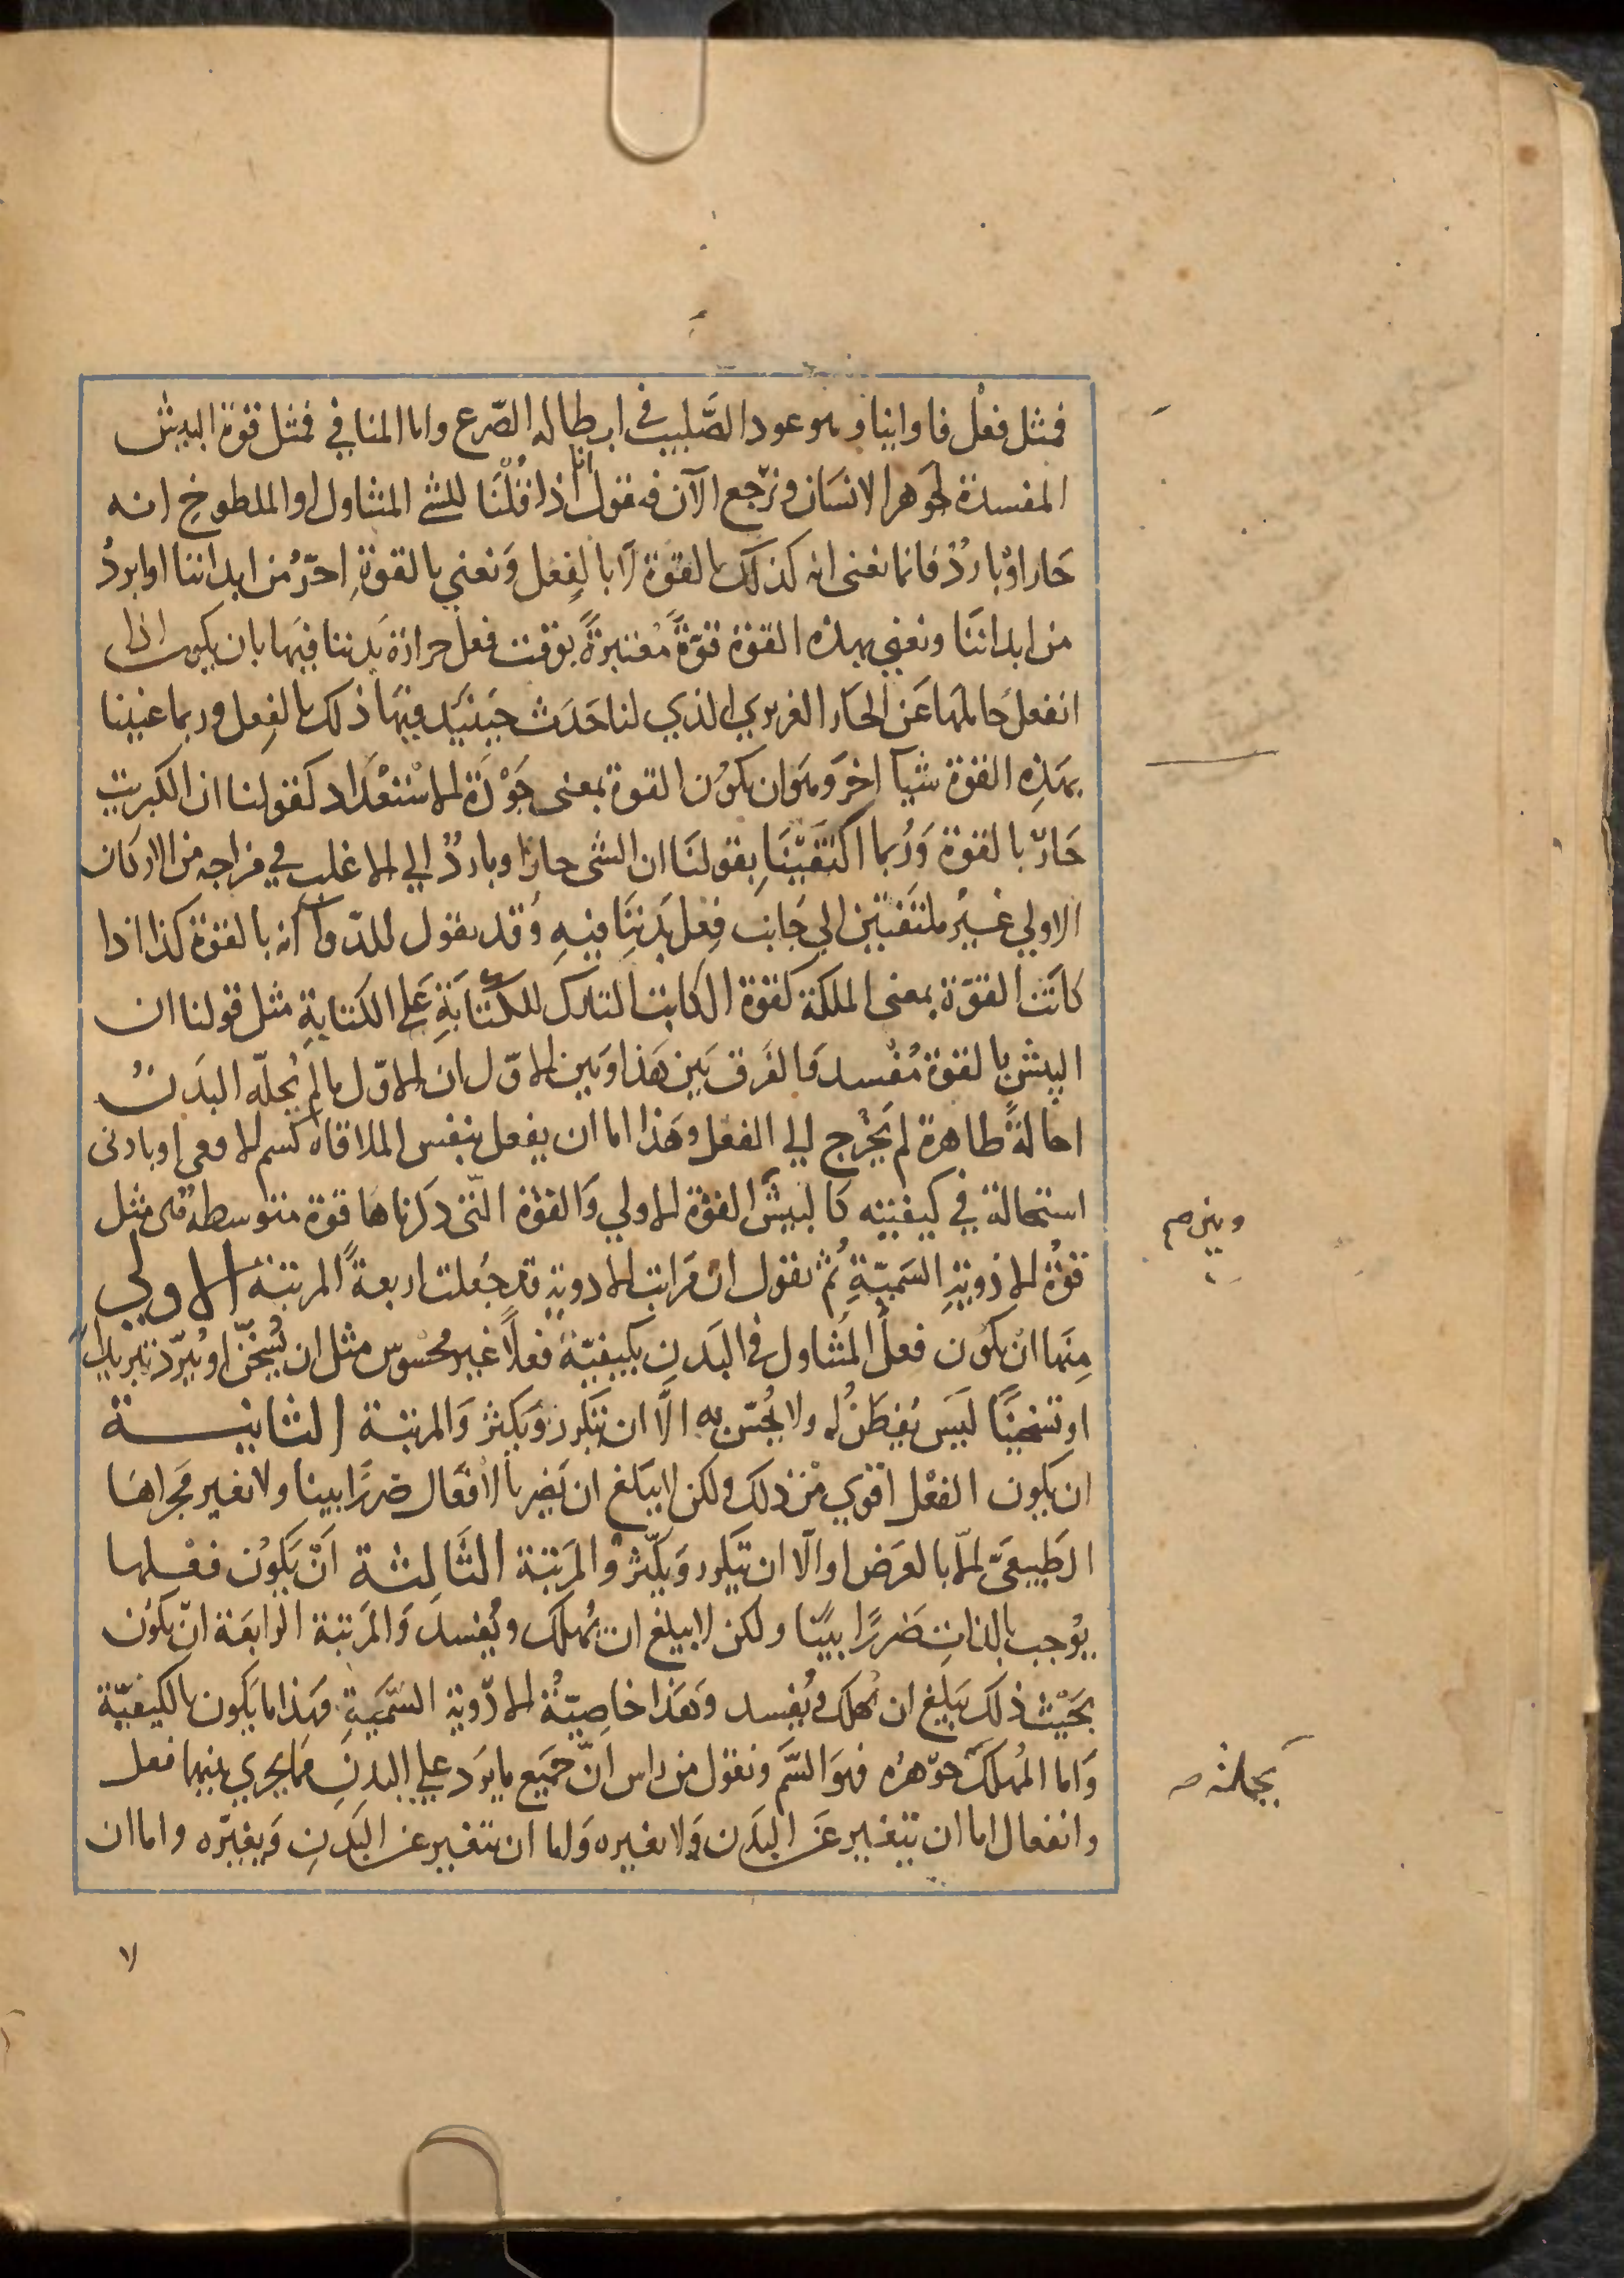 فمثل فعْل فاوانيا وهو عود الصَّليب في ابطاله الصّرع واما المنافي فمثل قوة البيش
المفسدة لجوهر الانسان ونرجع الآن فنقول انا اذا قُلْنَا للشئ المتناول او الملطوخ انه
حَار اوْ باردْ فانما نعنى انه كذلك بالقوة لَا بالفِعل وَنعني بالقوةِ احَرّ من ابداننا او ابردُ
من ابداننَا ونعني بهذه القوة قوّةً مُعتبرةً بوقت فعل حرارة بَدننا فيهَا بان يكون اذا
انفعل حَاملهَا عَن الحَار الغريزي الذي لنا حَدَث حينَئيذ فيهَا ذلك بالفِعل وربما عنينا
بهَذِه القوة شيآ اخرَ وهوَ ان يكوُن القوة بمعنى جَوْدَة الاسْتعْدَاد كقولنا ان الكبريت
حَارّ بالقوة وَرُبما اكتَفَيْنَا بقولنَا ان الشى حار او باردٌ الي الاغلب في مزاجه من الاركان
الاولي غيْر ملتفتين الي جَانب فِعل بَدنِنَا فيهِ وَقد نقول للدّوآ انه بالقوة كذا اذا
كَانَت القوّة بمعنى الملكة كقوة الكاتب التارك للكتَابَةِ عَلي الكتابةِ مثل قولنا ان
البيش بالقوة مُفْسد وَالفَرق بَين هَذا وَبَين الاوّل ان الاوّل ما لم يُحلّه البدَنُ
احالةً ظاهرة لم يَخْرج الي الفعل وهَذا اما ان يفعل بنفس الملاقاة كسم الافعى او بادنى
استحالة في كيفيته كَالبيشَ القوة الاولي وَالقوْة التّى ذكرناهَا قوة متوسطه هى مثل
وبين صح
قوْة الادويةِ السَميّةِ ثُم نقول ان مَراتب الادويةِ قد جُعلت اربعةً المرتبة الاولي
مِنهَا انْ يكوُن فعلُ المتَناول في البَدنِ بكيفيّة فعلًا غير محسْوس مثل ان يُسَخّن او يُبرّد تبريدًا
او تسَخيْنًا ليَس يُفِطَنُ له ولا يُحُسّ به الَّا ان يَتَكرر وَيكثرْ وَالمرتبة الثانيـــة
ان يكون الفعْل اقوي مْن ذلك ولكن لا يبَلغ ان يَضر بالافْعَال ضررًا بينا ولا تغير مَجراهَا
الطَبيعَىّ الّا بالعَرَض او الّا ان يَتَكرر وَيكَثرْ وَالمرَتبة الثَالثة انّ يَكوُن فعْـلها
يوُجب بالذاتِ ضَررًا بيّنًا ولكن لا يبلغ ان يُهلك ويُفسدَ وَالمَرتبة الرابعَة انّ يكوُن
بحَيْث ذلك يَبلغ ان يُهلك ويُفسد وَهَذا خاصِيّةُ الادّوية السّمّيةِ فهَذا ما يَكون بالكيفيّة
وَاما المُهلك جوّهرُه فهوَ السَّم ونقول من راس انّ جَميَع ما يرَد علي البدنِ ممَا يجري بنيهما فعل
بجملته صـ
وانفعال اما ان يتغير عَن البدَن وَلا يغيره وَاما ان يتغير عن البَدنِ وَيغيّره واما ان
٧